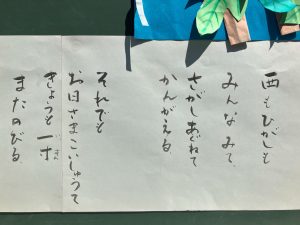 西もひがしも
みんなみて、
さがしあぐねて
かんがえる。
それでも
お日さまこいしゅうて
きょうも一寸
いっすん
またのびる